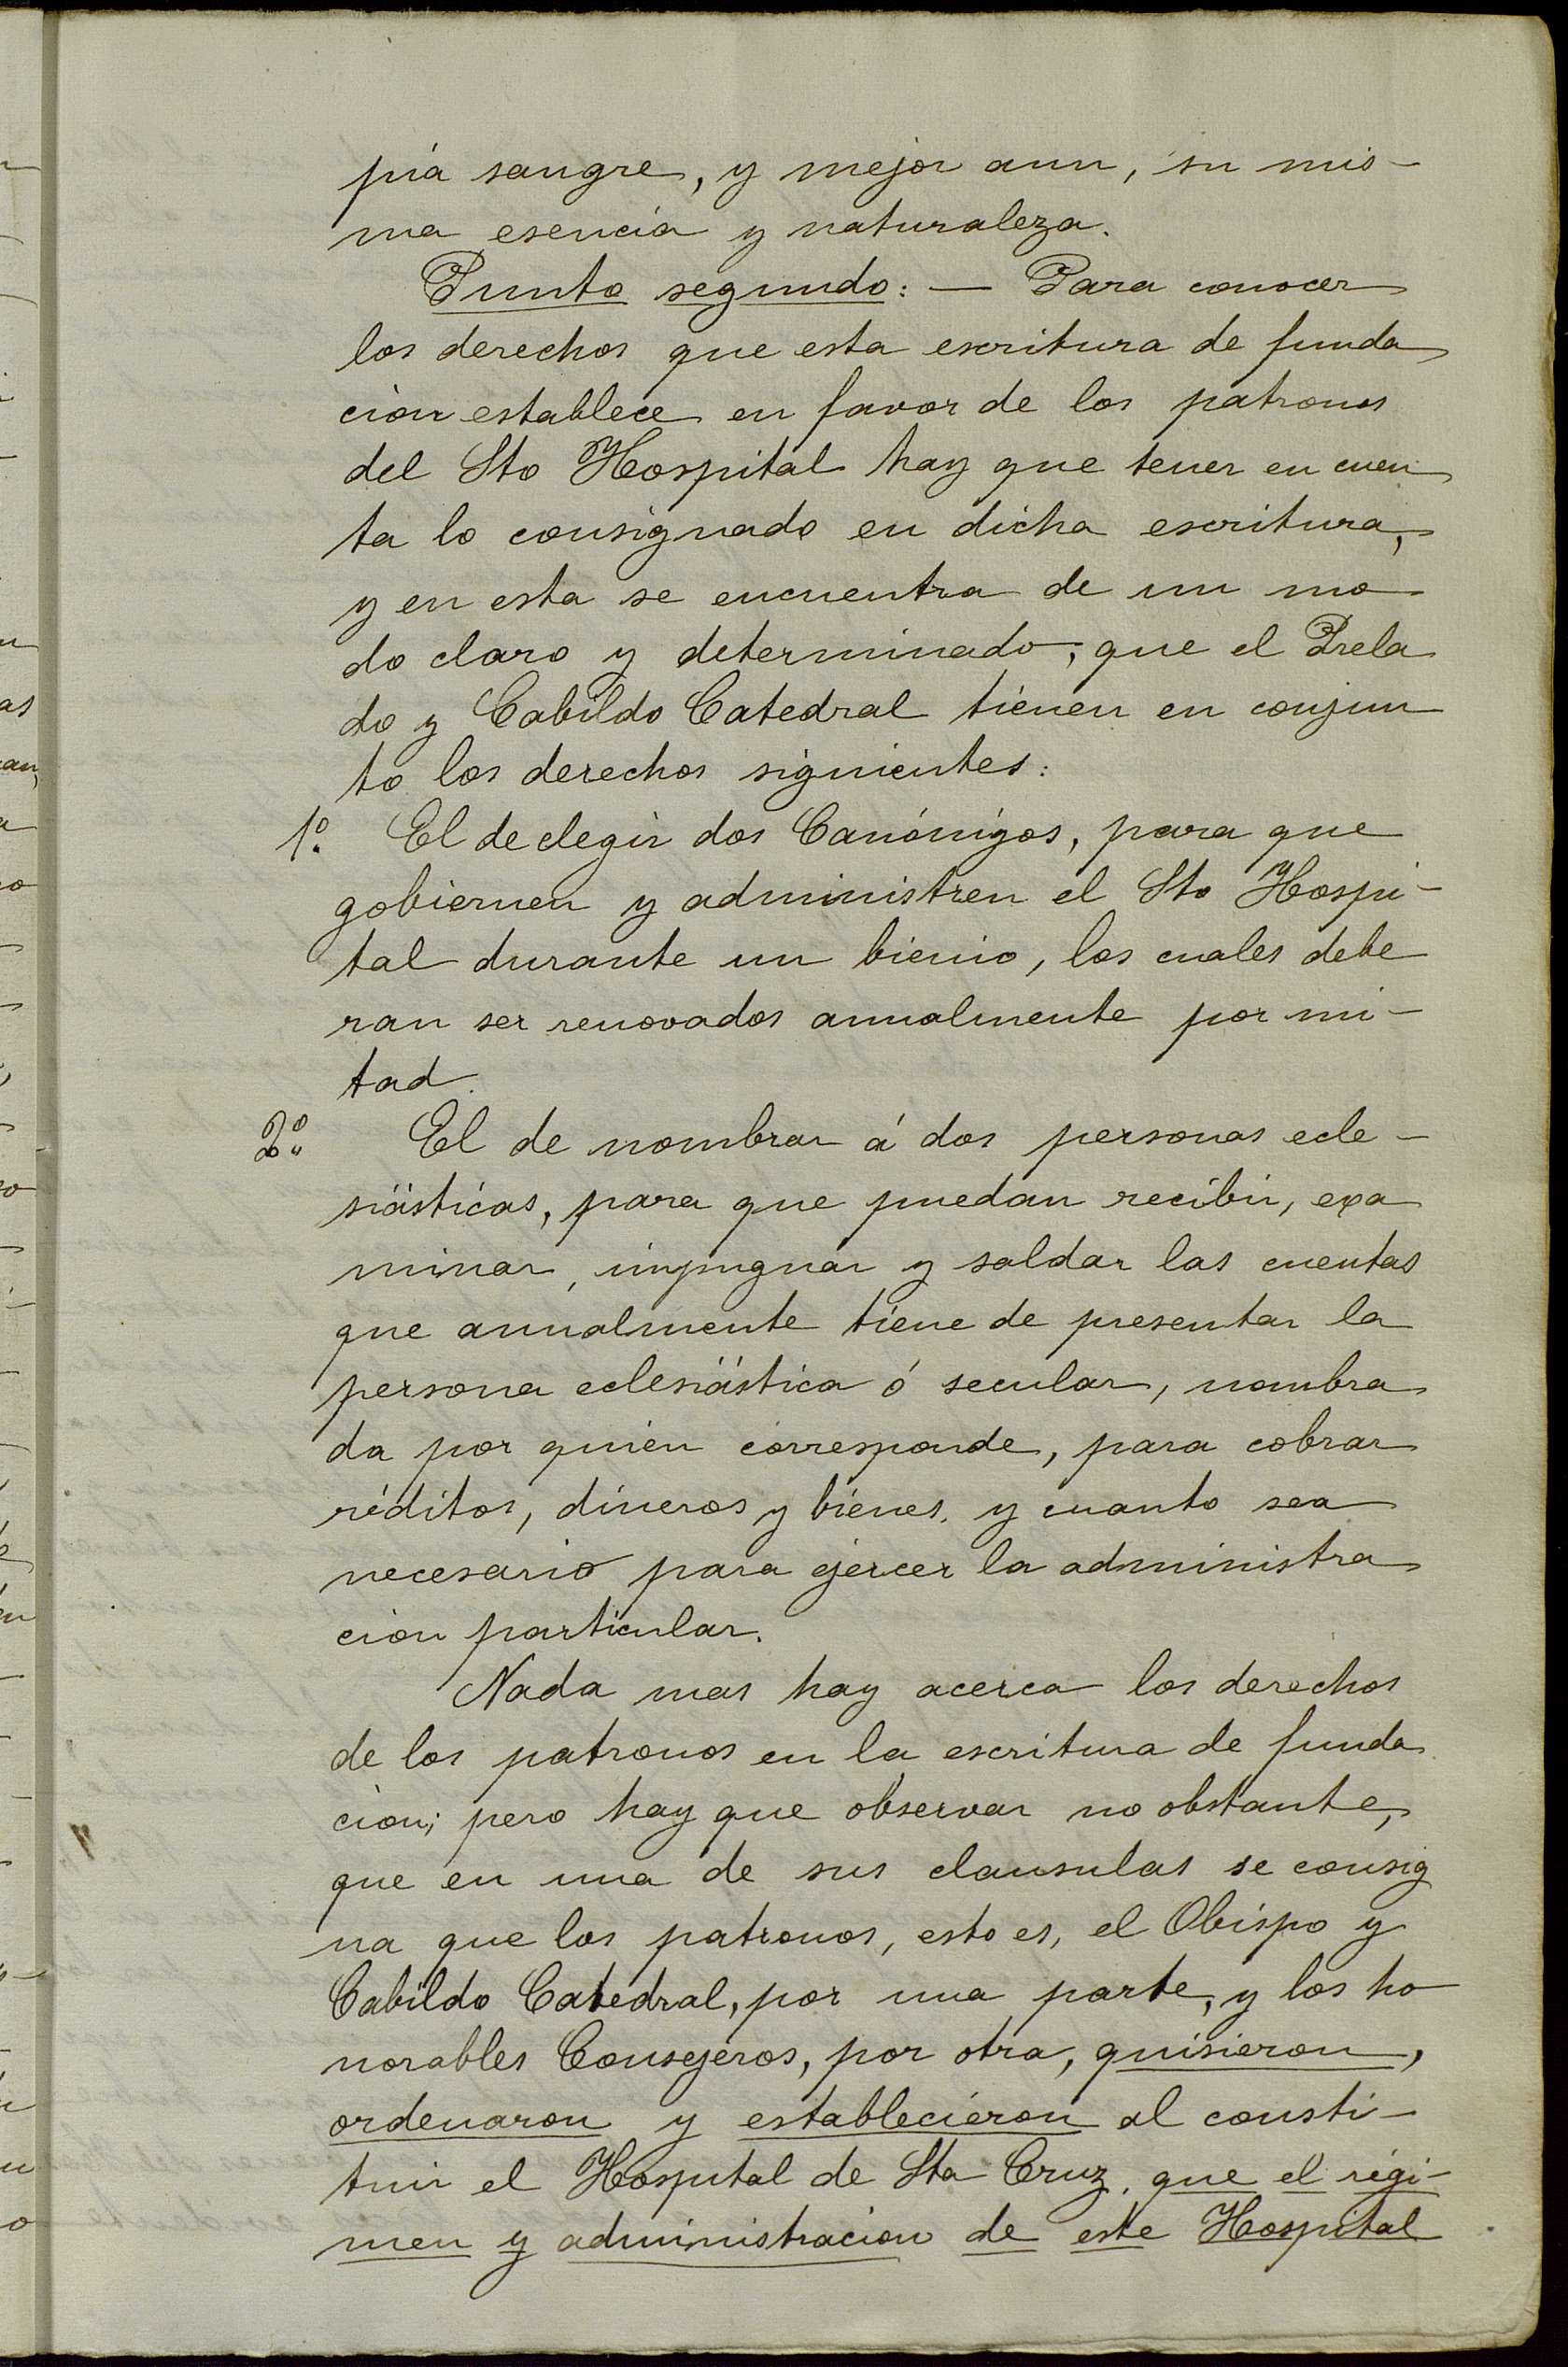 pia sangre, y mejor aun, su mis-
ma esencia y naturaleza.
Punto segundo: — Para conocer
los derechos que esta escritura de funda
cion establece en favor de los patronos
del Sto Hospital hay que tener en cuen
ta lo consignado en dicha escritura,
y en esta se encuentra de un mo
do claro y determinado, que el Prela
do y Cabildo Catedral tienen en conjun
to los derechos siguientes:
1º. El de elegir dos Canónigos, para que
gobiernen y administren el Sto Hospi-
tal durante un bienio, los cuales debe
ran ser renovados anualmente por mi-
tad.
2º. El de nombrar á dos personas ecle-
siásticas, para que puedan recibir, exa
minar, impugnar y saldar las cuentas
que anualmente tiene de presentar la
persona eclesiástica ó secular, nombra
da por quien corresponde, para cobrar
réditos, dineros y bienes, y cuanto sea
necesario para ejercer la administra
cion particular.
Nada mas hay acerca los derechos
de los patronos en la escritura de funda
cion; pero hay que observar no obstante,
que en una de sus clausulas se consig
na que los patronos, esto es, el Obispo y
Cabildo Catedral, por una parte, y los ho
norables Consejeros, por otra, quisieron,
ordenaron y establecieron al consti-
tuir el Hospital de Sta Cruz, que el régi-
men y administracion de este Hospital